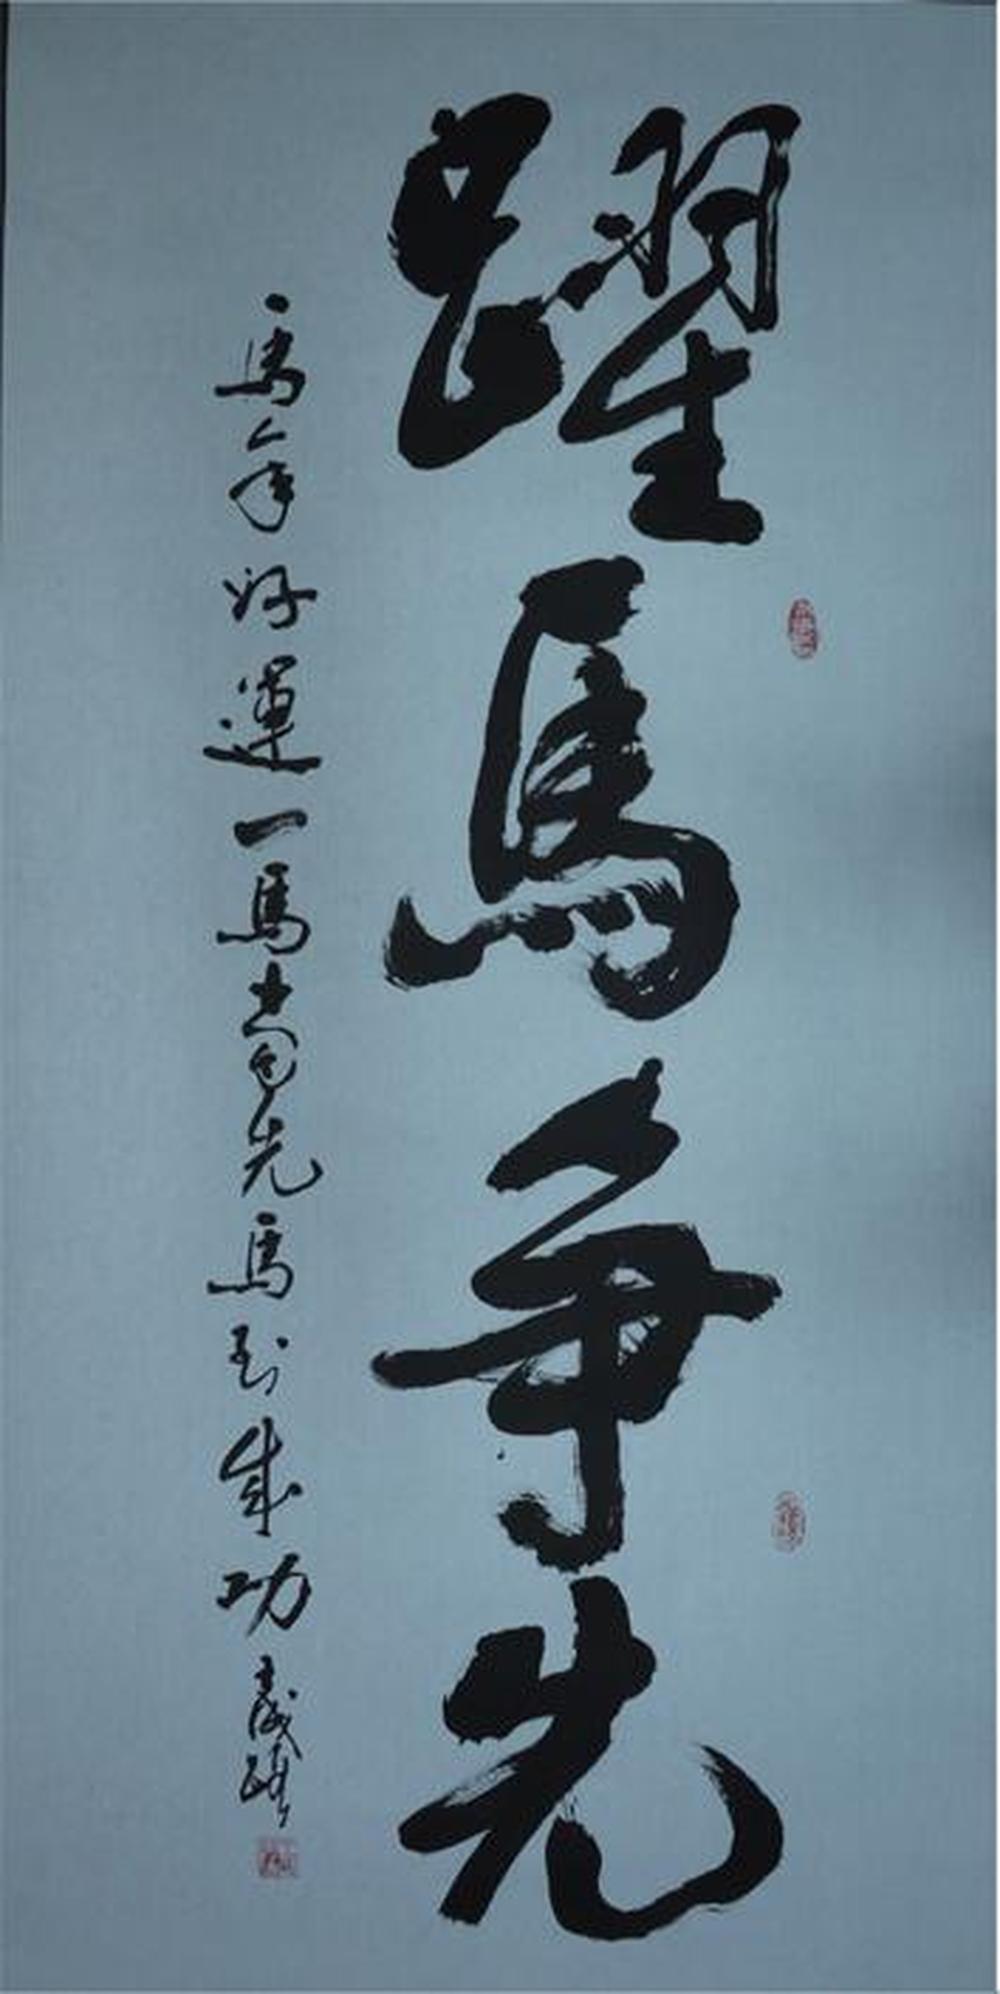 躍馬争先
馬年好運一馬當先馬到成功